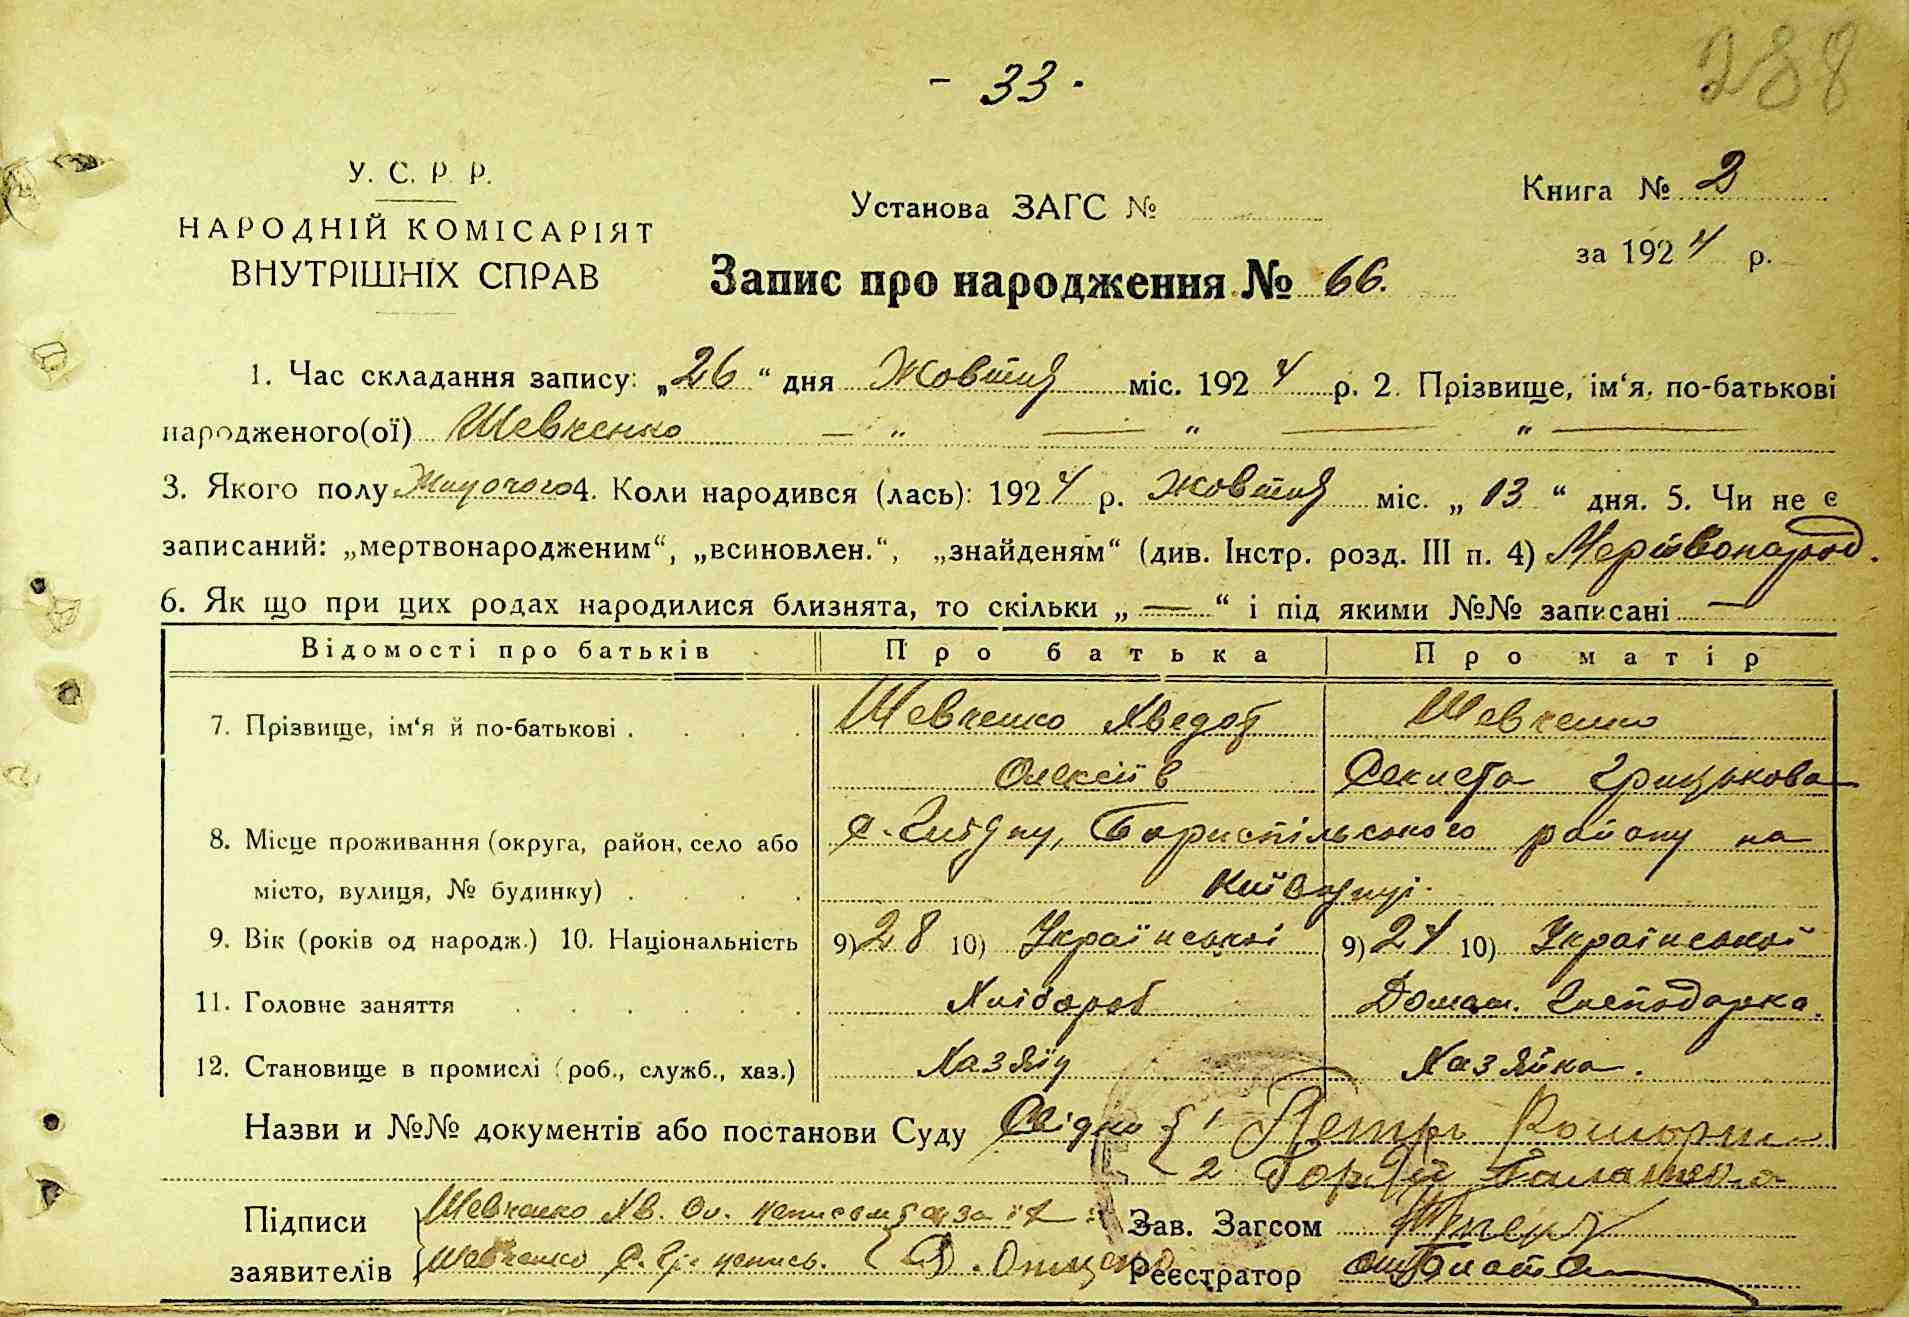 288
- 33 -
У. С. Р. Р.
НАРОДНІЙ КОМІСАРІЯТ
ВНУТРІШНІХ СПРАВ
Установа ЗАГС №
Книга № 2
за 1924 р.
Запис про народження № 66.
1. Час складання запису: „26“ дня Жовтня міс. 1924 р. 2. Прізвище, ім‘я, по-батькові
народженого(ої) Шевченко — „ — „ — „ —
3. Якого полу Жиночого 4. Коли народився (лась): 1924 р. Жовтня міс. „13“ дня. 5. Чи не є
записаний: „мертвонародженим“, „всиновлен.“, „знайденям“ (див. Інстр. розд. III п. 4) Мертвонарод.
6. Як що при цих родах народилися близнята, то скільки „—“ і під якими №№ записані —
Відомості про батьків Про батька Про матір
7. Прізвище, ім‘я й по-батькові . . . . Шевченко Хведот Шевченко
Олексіїв Секлета Грицькова
8. Місце проживання (округа, район, село або с. Бориспільського району на
місто, вулиця, № будинку) . . . . Київщині.
9. Вік (років од народж.) 10. Національність 9) 28 10) Української 9) 24 10) Української
11. Головне заняття . . . . . . Хлібороб Домаш. Господарка.
12. Становище в промислі (роб., служб., хаз.) Хазяїн Хазяйка.
Назви и №№ документів або постанови Суду Свідки { 1 Петро
2 Гордій
Підписи Шевченко Хв. Ол. неписьм. за їх Зав. Загсом
заявителів Шевченко С. Гр. неписьм. Реєстратор